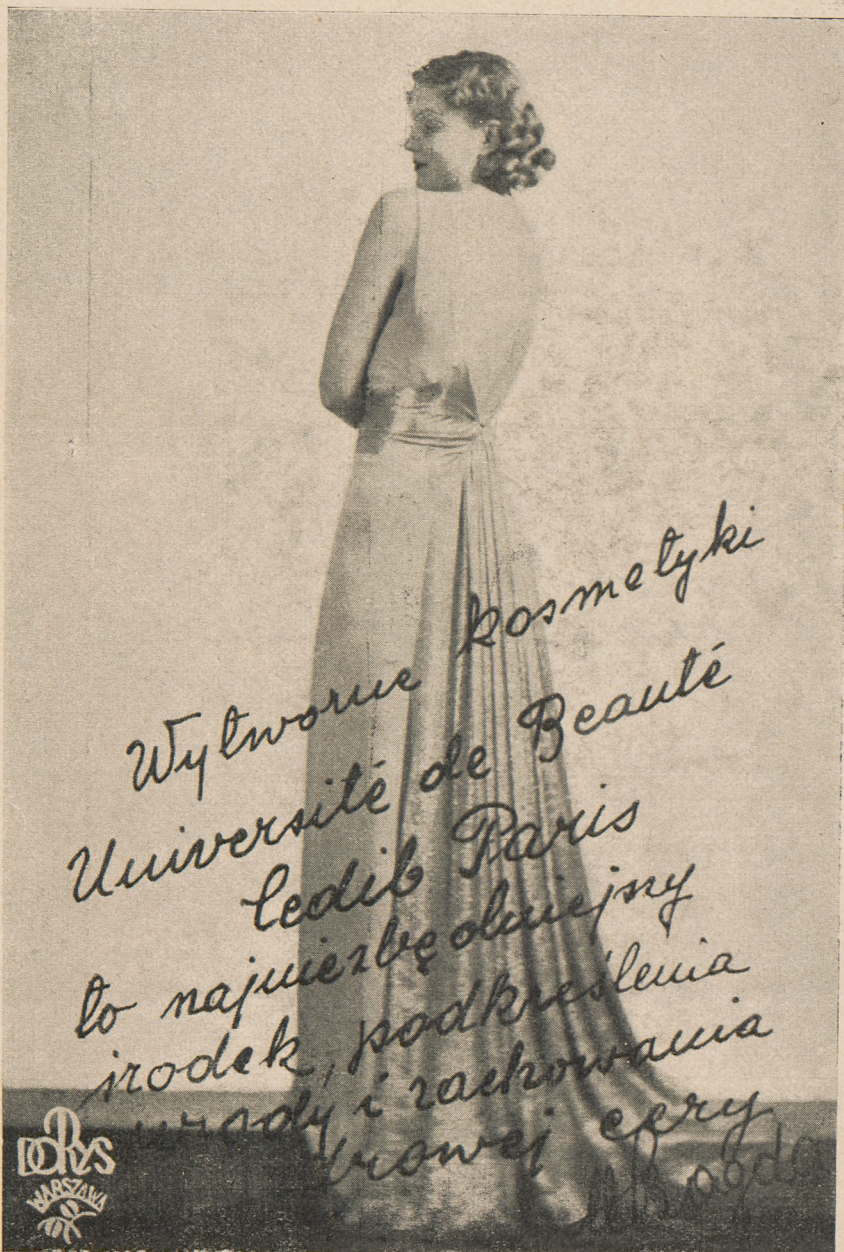 Wytworne kosmetyki
Université de Beauté
Cedib Paris
to najniezbędniejszy
środek, podkreślenia
urody i zachowania
zdrowej cery
Bogda
DORYS
WARSZAWA